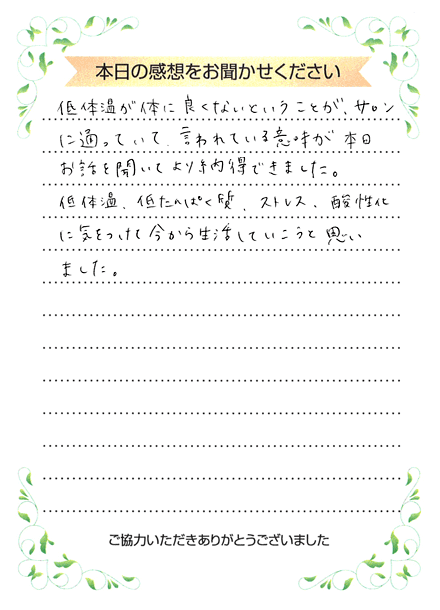 本日の感想をお聞かせください
低体温が体に良くないということが、サロン
に通っていて、言われている意味が本日
お話を聞いてより納得できました。
低体温、低たんぱく質、ストレス、酸性化
に気をつけて今から生活していこうと思い
ました。
ご協力いただきありがとうございました